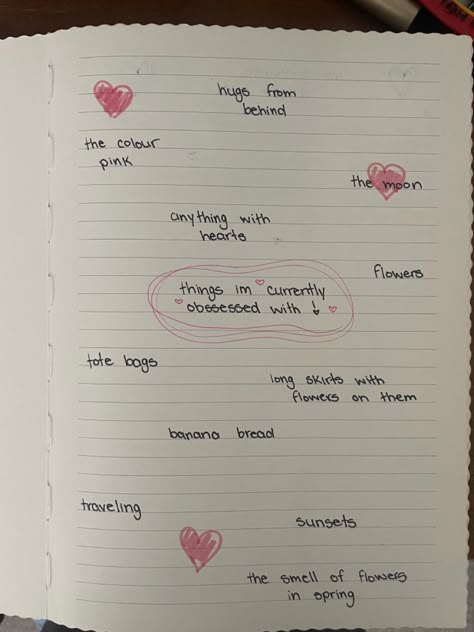 hugs from
behind
the colour
pink
the moon
anything with
hearts
flowers
things im currently
obssessed with !
tote bags
long skirts with
flowers on them
banana bread
traveling
sunsets
the smell of flowers
in spring